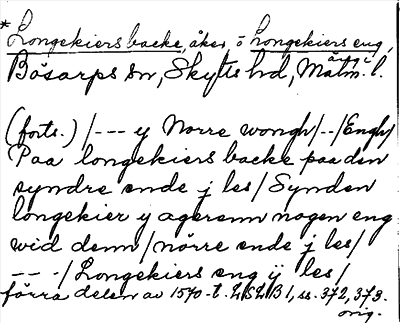 * Longekiers backe, åker o Longekiers eng,
Bösarps sn, Skytts hd, Malm. l.
(forts.) /--- y Norre wongh/--/Engh/
Paa longekiers backe paa den
syndre ende j les/ Synden
longekier y agerenn nogen eng
wid denn/ nörre ende j les/
---/ Longekiers eng ÿ les/
förra delen av 1570-t. LSLB 1, ss. 372, 373.
orig.